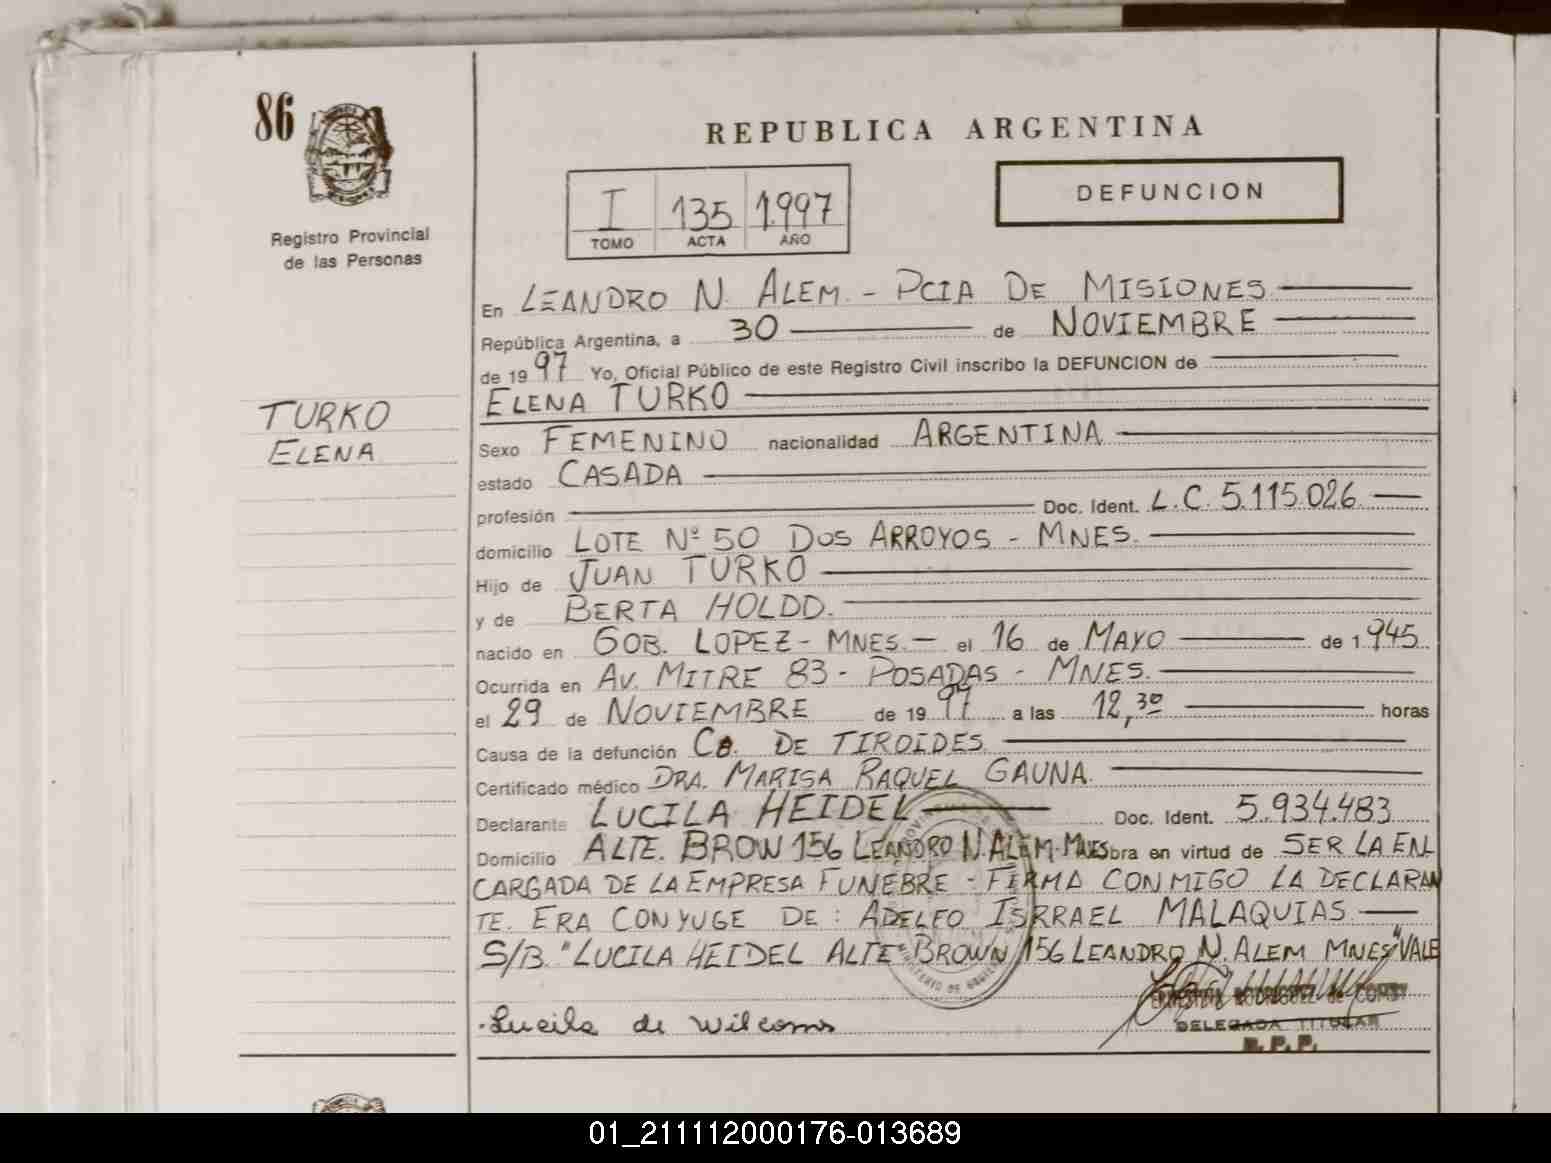 86
REPUBLICA ARGENTINA
DEFUNCION
I 135 1997
TOMO ACTA AÑO
Registro Provincial
de las Personas
En LEANDRO N. ALEM.- PCIA DE MISIONES
República Argentina, a 30 de NOVIEMBRE
de 1997 Yo, Oficial Público de este Registro Civil inscribo la DEFUNCION de
ELENA TURKO
TURKO
ELENA
Sexo FEMENINO nacionalidad ARGENTINA
estado CASADA
profesión Doc. Ident. L.C. 5.115.026
domicilio LOTE Nº 50 DOS ARROYOS - MNES.
Hijo de JUAN TURKO
y de BERTA HOLDD.
nacido en GOB. LOPEZ - MNES.- el 16 de MAYO de 1945
Ocurrida en AV. MITRE 83 - POSADAS - MNES.
el 29 de NOVIEMBRE de 1997 a las 12,30 horas
Causa de la defunción Ca. DE TIROIDES
Certificado médico DRA. MARISA RAQUEL GAUNA.
Declarante LUCILA HEIDEL Doc. Ident. 5.934.483
Domicilio ALTE. BROW 156 LEANDRO N. ALEM-MNES bra en virtud de SER LA EN
CARGADA DE LA EMPRESA FUNEBRE - FIRMA CONMIGO LA DECLARAN
TE. ERA CONYUGE DE: ADELFO ISRRAEL MALAQUIAS
S/B. "LUCILA HEIDEL ALTE BROWN 156 LEANDRO N. ALEM MNES" VALE
RODRIGUEZ de
Lucila de
DELEGADA TITULAR
R.P.P.
01_211112000176-013689